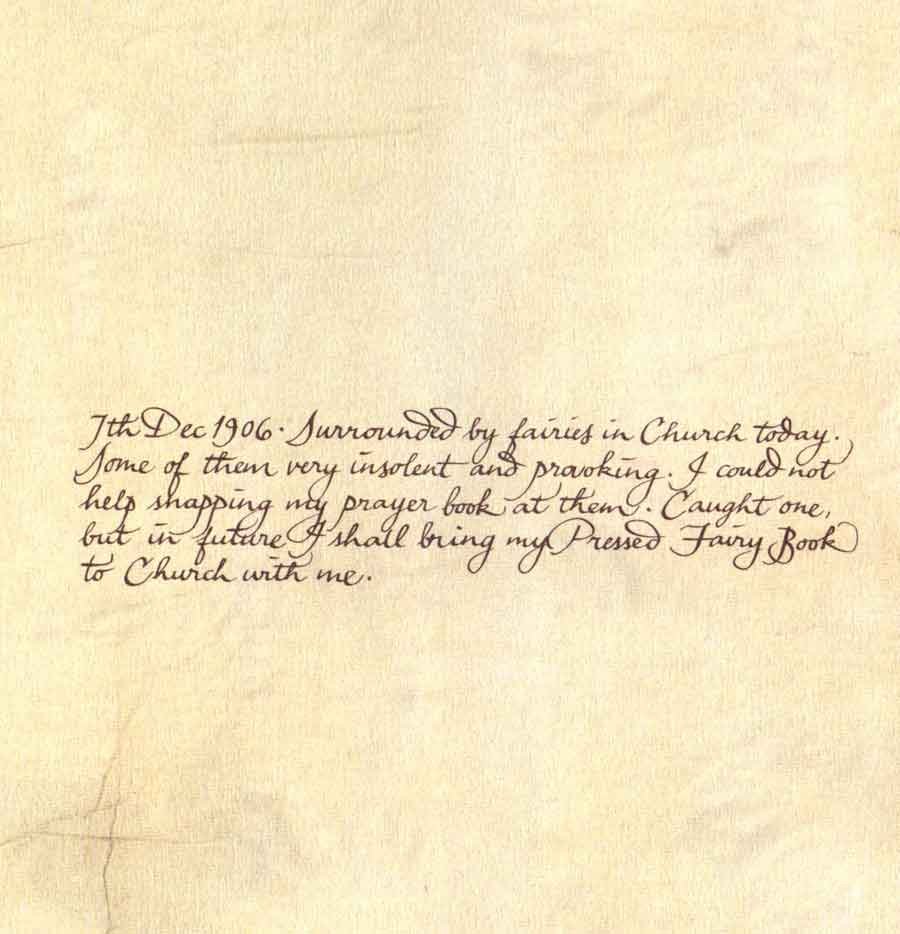 7th Dec 1906. Surrounded by fairies in Church today.
Some of them very insolent and provoking. I could not
help snapping my prayer book at them. Caught one,
but in future I shall bring my Pressed Fairy Book
to Church with me.